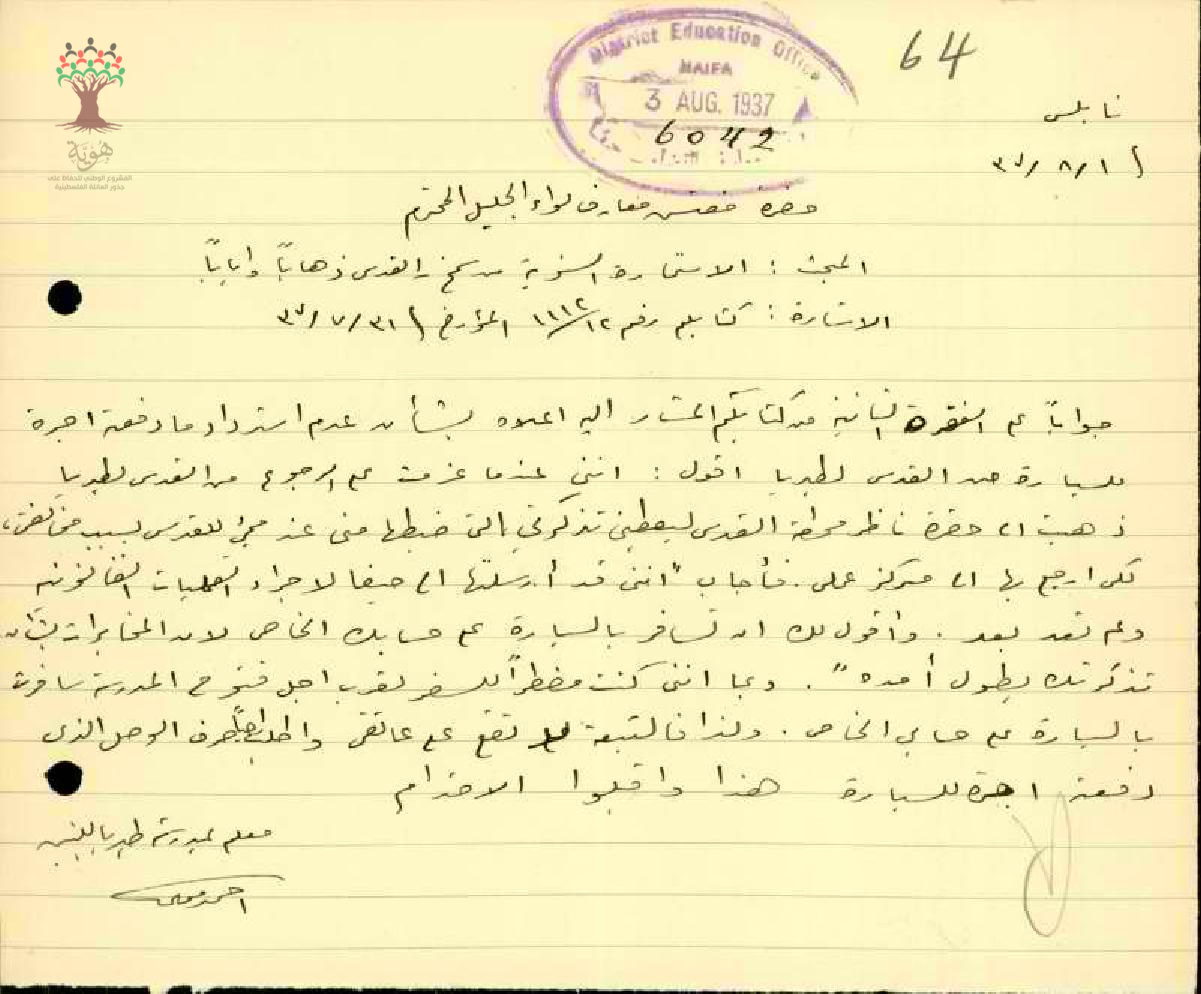 64
District Education Office
HAIFA
3 AUG. 1937
6042
هوية
المشروع الوطني للحفاظ على
جذور العائلة الفلسطينية
نابلس
٣٧/٨/١
حضرة مفتش معارف لواء الجليل المحترم
المبحث : الاستمارة السنوية من سمخ القدس ذهاباً واياباً
الاشارة : كتابكم رقم ١١١٢/١٢ المؤرخ ٣٧/٧/٣١
جواباً على الفقرة الثانية من كتابكم المشار اليه اعلاه بشأن عدم استرداد ما دفعته اجرة
للسيارة من القدس لطبريا اقول : انني عندما عزمت على الرجوع من القدس لطبريا
ذهبت الى حضرة ناظر محطة القدس ليعطيني تذكرتي التي ضبطها مني عند مجيئي للقدس بسبب
لكي ارجع بها الى مركز عملي . فأجاب "انني قد أرسلتها الى حيفا لاجراء القانونية
ولم تعد بعد . واقول لك ان تسافر بالسيارة على حسابك الخاص لان المخابرات بشأن
تذكرتك يطول أمده" . وبما انني كنت مضطراً للسفر لقرب اجل فتوح المدرسة سافرت
بالسيارة على حسابي الخاص . ولذا فالتبعة لا تقع على عاتقي واطلب صرف الوصل الذي
دفعته اجرة للسيارة هذا واقبلوا الاحترام
معلم بمدرسة طبريا للبنين
احمد